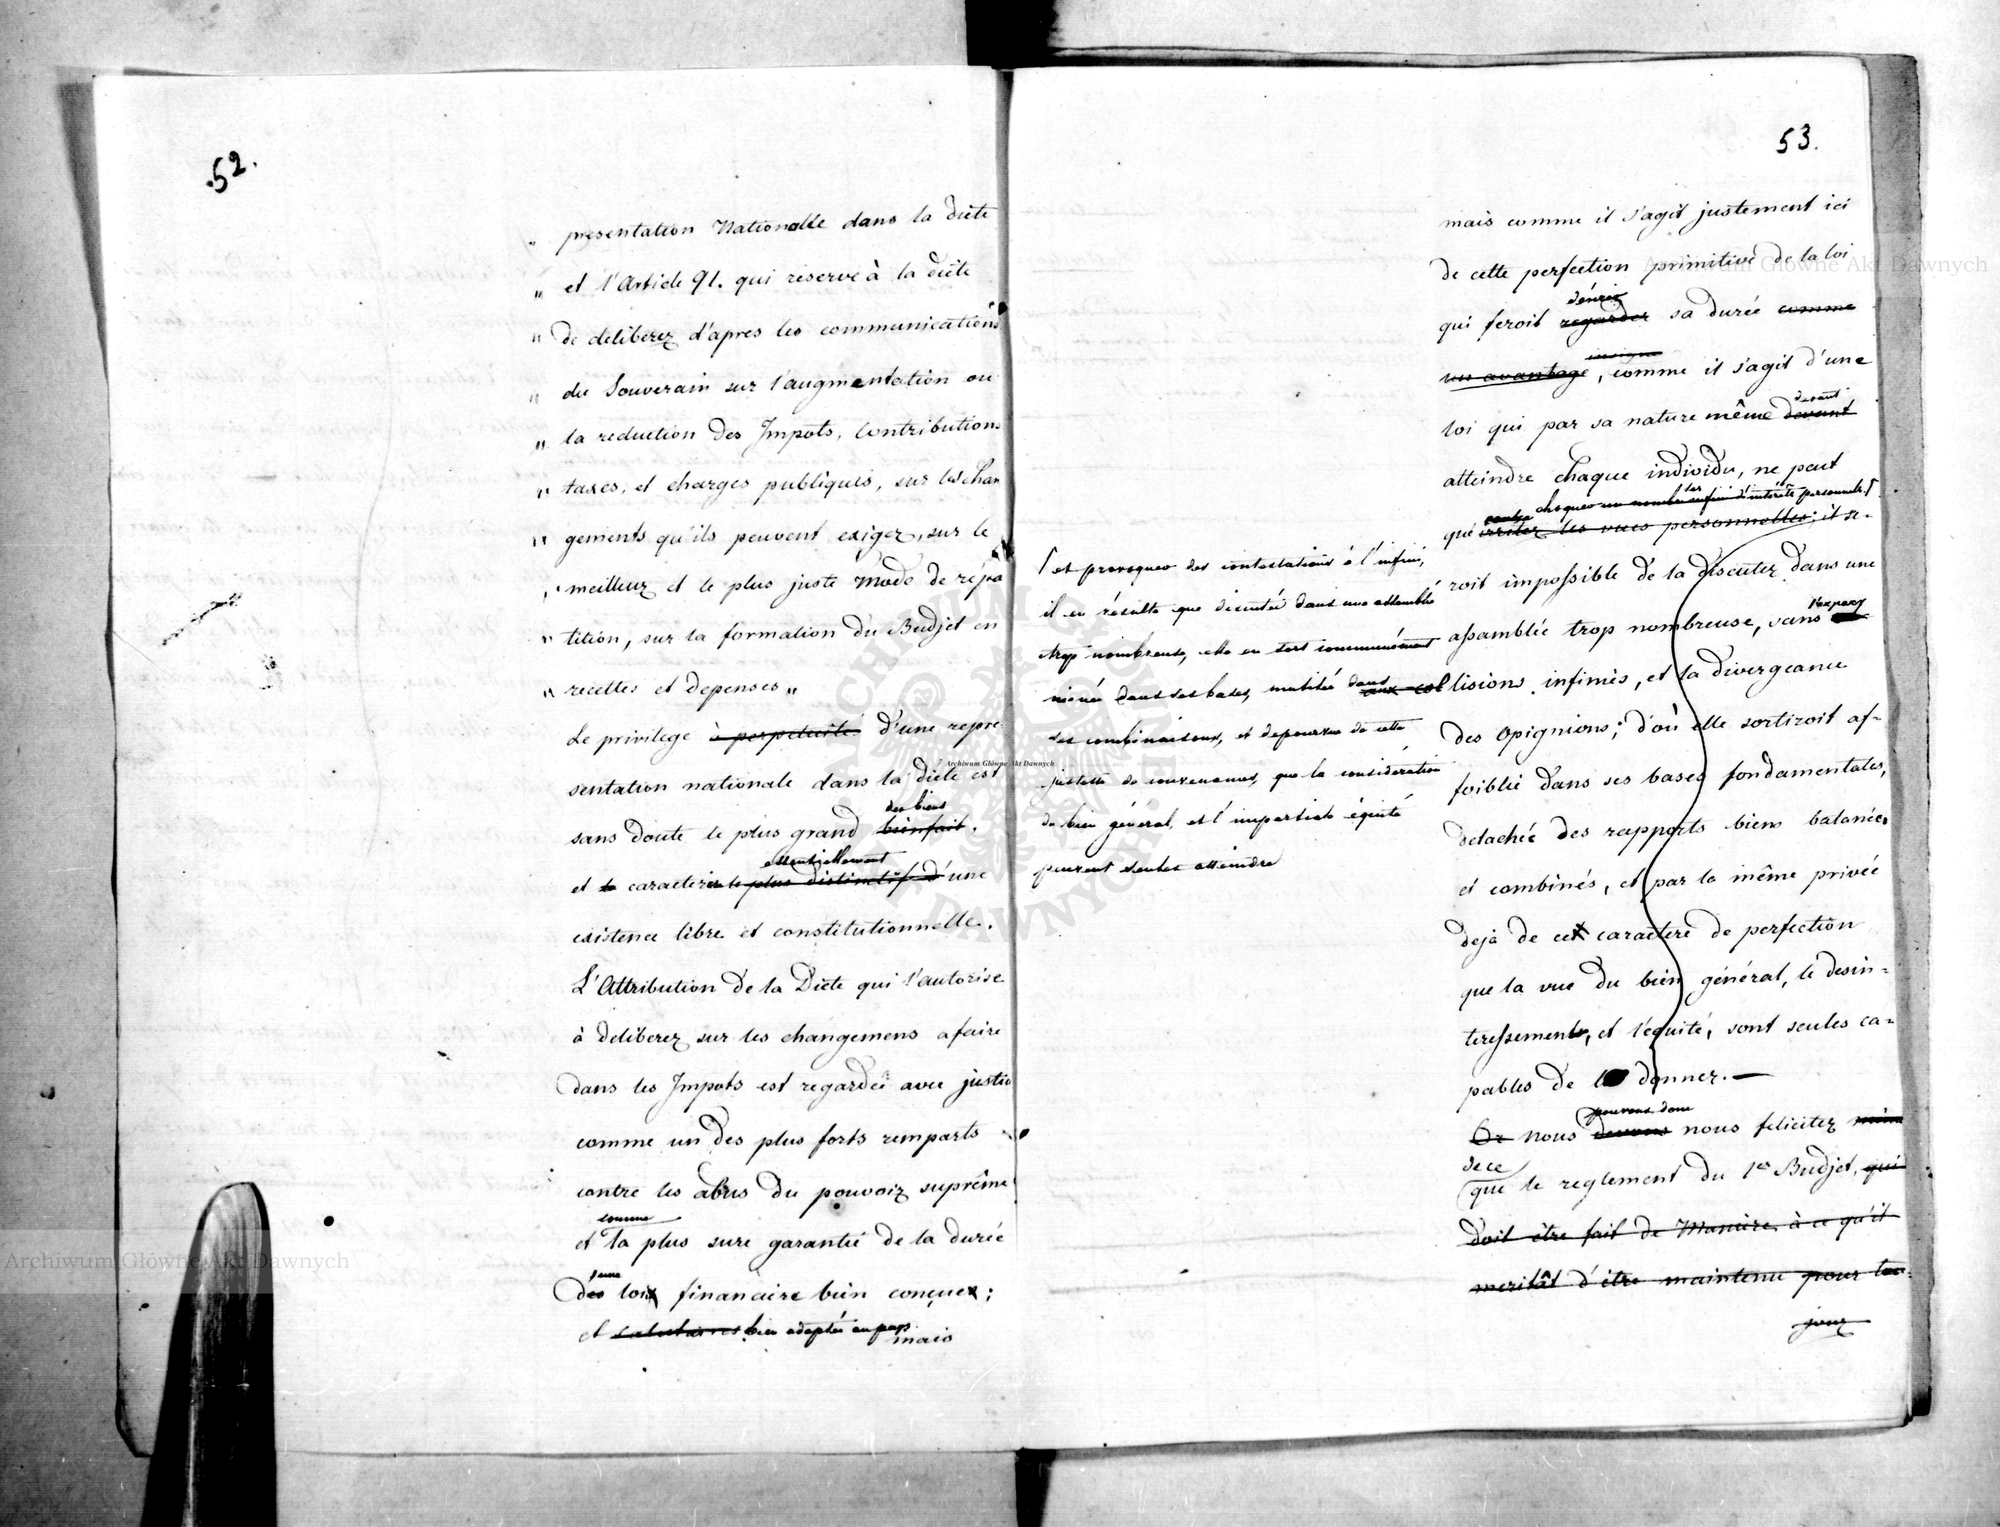 52.
" presentation Nationalle dans la diète
" et l'Article 91. qui reserve à la diète
" de deliberez d'apres les communications
" du Souverain sur l'augmentation ou
" la reduction des Impots, Contributions
" taxes, et charges publiques, sur les chan
" gements qu'ils peuvent exigez, sur le
" meilleur et le plus juste mode de répar
" tition, sur la formation du Budjet en
" recettes et depenses "
Le privilege à perpetuité d'une repre
sentation nationale dans la diète est
des biens
sans doute le plus grand bienfait.
essentiellement
et le caracterise le plus distinctif d'une
existence libre et constitutionnelle.
L'Attribution de la Diète qui l'autorise
à deliberez sur les changemens a faire
dans les Impots est regardée avec justice
comme un des plus forts remparts
contre les abus du pouvoir suprême
comme
et la plus sure garantie de la durée
d'une
des loix financaire bien conçuex;
et salutaires bien adaptée au pays
mais
53.
mais comme il s'agit justement ici
de cette perfection primitive de la loi
désirer
qui feroit regarder sa durée comme
insigne
un avantage, comme il s'agit d'une
devant
loi qui par sa nature même devant
atteindre chaque individu, ne peut
choquer un nombre infini d'intérêts personnels
que irriter les vues personnelles; il se-
roit impossible de la discutez dans une
l'exposer
assamblée trop nombreuse, sans
aux collisions infimès, et la divergeance
des opignions; d'où elle sortiroit af-
foiblie dans ses bases fondamentales,
detachée des rapports biens balancés
et combinés, et par la même privée
deja de cet caractere de perfection
que la vue du bien général, le desin-
teressement, et l'equité, sont seules ca-
pables de donner. —
pouvons donc
Or nous devons nous felicitez même
de ce
que le reglement du 1er Budjet, qui
doit être fait de Manière, à ce qu'il
meritât d'être maintenu pour tou-
jour
et provoquer des contestations à l'infini,
il en résulte que discutée dans une assemblée
trop nombreuse, elle en sort communément
minée dans ses bases, mutilée dans
ses combinaisons, et depourvue de cette
justesse de convenances, que la considération
du bien général, et l'impartiale équité
peuvent seules atteindre